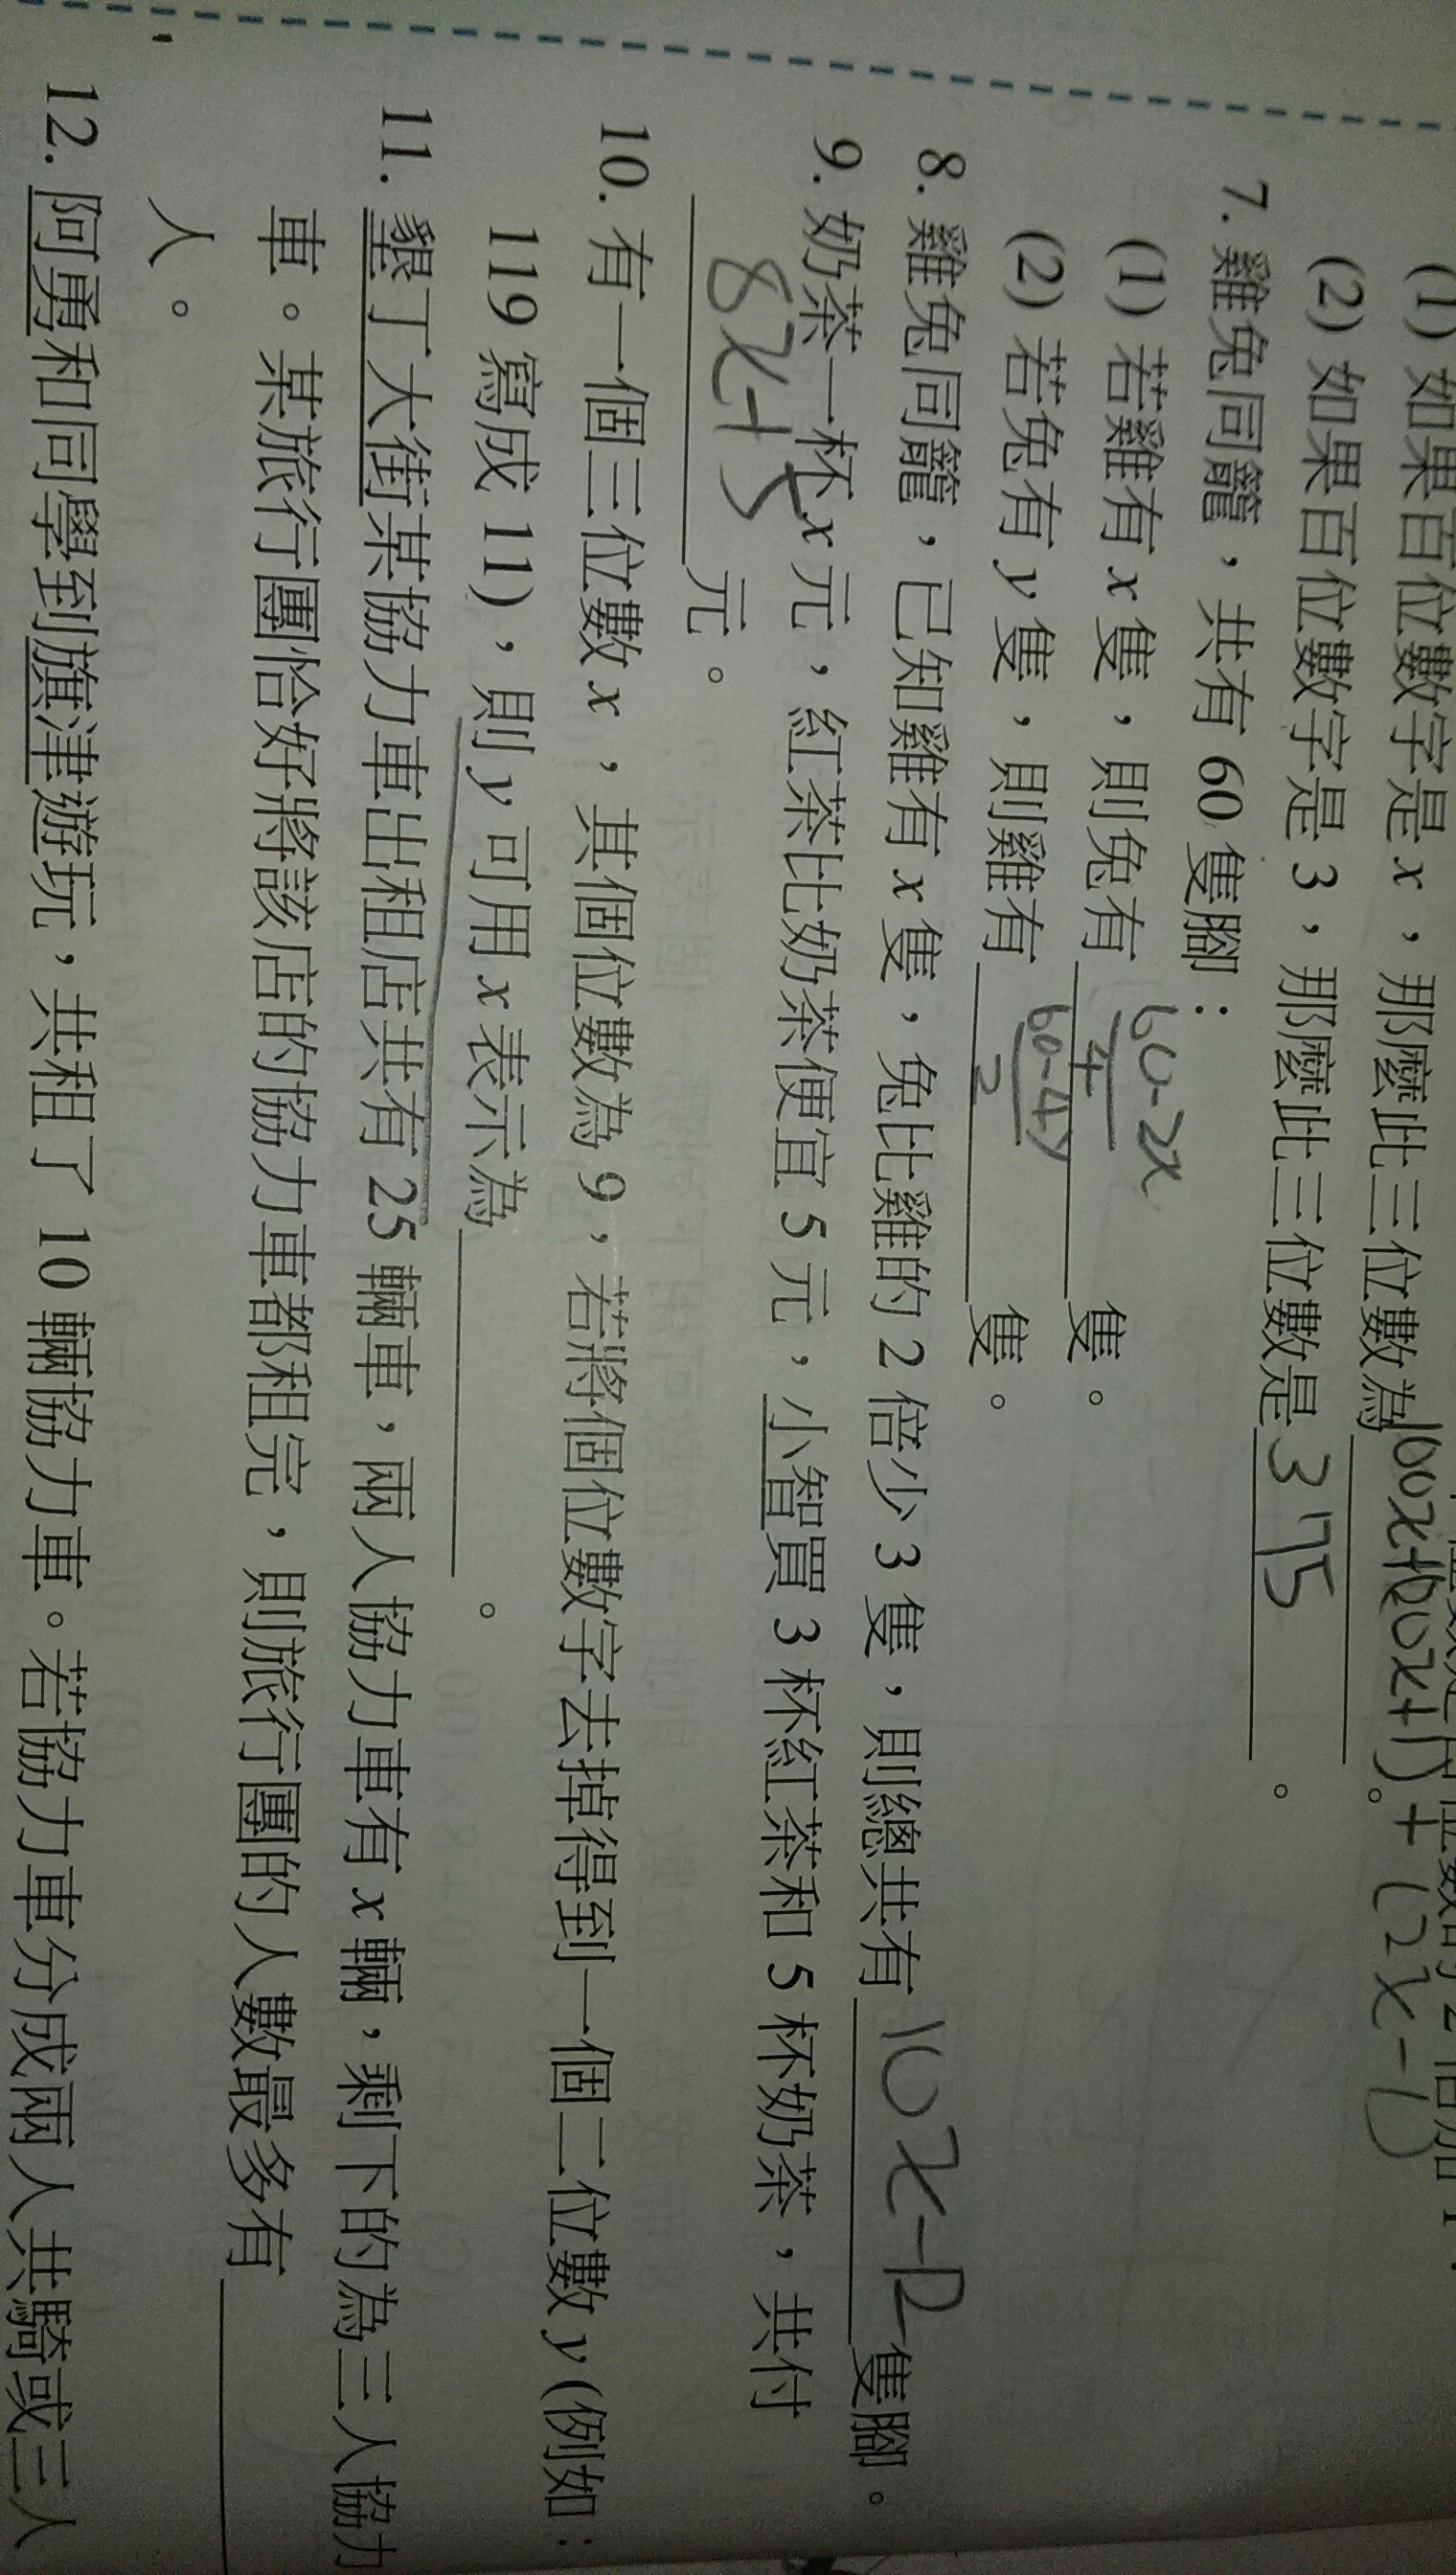 (1) 如果百位數字是 x，那麼此三位數為100x+10(2x+1)。+(2x-1)
(2) 如果百位數字是 3，那麼此三位數是 375。
7. 雞兔同籠，共有 60 隻腳：
(1) 若雞有 x 隻，則兔有 60-2x/4 隻。
(2) 若兔有 y 隻，則雞有 60-4y/2 隻。
8. 雞兔同籠，已知雞有 x 隻，兔比雞的 2 倍少 3 隻，則總共有 10x-12 隻腳。
9. 奶茶一杯 x 元，紅茶比奶茶便宜 5 元，小智買 3 杯紅茶和 5 杯奶茶，共付
8x+5 元。
10. 有一個三位數 x，其個位數為 9，若將個位數字去掉得到一個二位數 y (例如：
119 寫成 11)，則 y 可用 x 表示為 。
11. 墾丁大街某協力車出租店共有 25 輛車，兩人協力車有 x 輛，剩下的為三人協力
車。某旅行團恰好將該店的協力車都租完，則旅行團的人數最多有
人。
12. 阿勇和同學到旗津遊玩，共租了 10 輛協力車。若協力車分成兩人共騎或三人